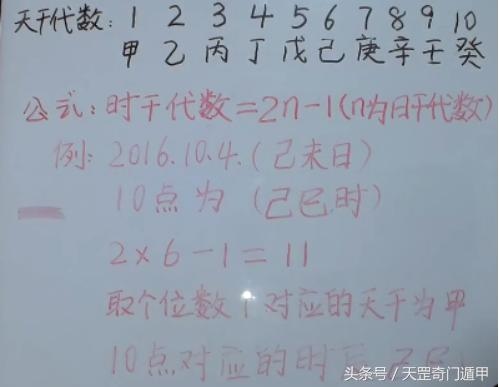 天干代数: 1 2 3 4 5 6 7 8 9 10
甲 乙 丙 丁 戊 己 庚 辛 壬 癸
公式: 时干代数=2n-1(n为日干代数)
例: 2016.10.4.(己未日)
10点为(己巳时)
2×6-1=11
取个位数1对应的天干为甲
10点对应的时
头条号/天罡奇门遁甲